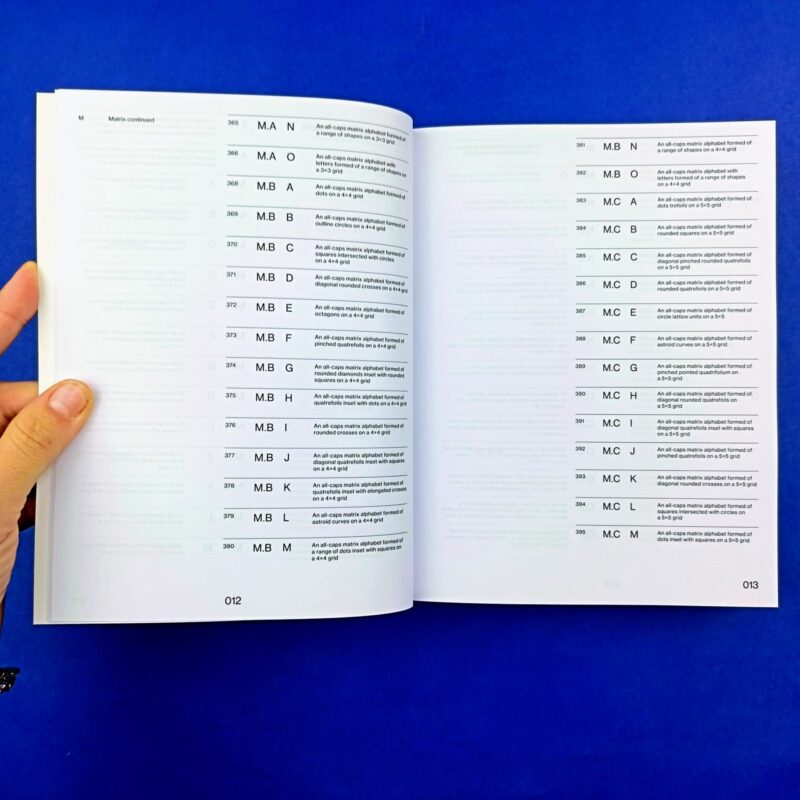 M Matrix continued
365 M.A N An all-caps matrix alphabet formed of
a range of shapes on a 3×3 grid
366 M.A O An all-caps matrix alphabet with
letters formed of a range of shapes on
a 3×3 grid
368 M.B A An all-caps matrix alphabet formed of
dots on a 4×4 grid
369 M.B B An all-caps matrix alphabet formed of
outline circles on a 4×4 grid
370 M.B C An all-caps matrix alphabet formed of
squares intersected with circles
on a 4×4 grid
371 M.B D An all-caps matrix alphabet formed of
diagonal rounded crosses on a 4×4 grid
372 M.B E An all-caps matrix alphabet formed of
octagons on a 4×4 grid
373 M.B F An all-caps matrix alphabet formed of
pinched quatrefoils on a 4×4 grid
374 M.B G An all-caps matrix alphabet formed of
rounded diamonds inset with rounded
squares on a 4×4 grid
375 M.B H An all-caps matrix alphabet formed of
quatrefoils inset with dots on a 4×4 grid
376 M.B I An all-caps matrix alphabet formed of
rounded crosses on a 4×4 grid
377 M.B J An all-caps matrix alphabet formed of
diagonal quatrefoils inset with squares
on a 4×4 grid
378 M.B K An all-caps matrix alphabet formed of
quatrefoils inset with elongated crosses
on a 4×4 grid
379 M.B L An all-caps matrix alphabet formed of
astroid curves on a 4×4 grid
380 M.B M An all-caps matrix alphabet formed of
a range of dots inset with squares on
a 4×4 grid
012
381 M.B N An all-caps matrix alphabet formed of
a range of shapes on a 4×4 grid
382 M.B O An all-caps matrix alphabet with
letters formed of a range of shapes
on a 4×4 grid
383 M.C A An all-caps matrix alphabet formed of
dots trefoils on a 5×5 grid
384 M.C B An all-caps matrix alphabet formed of
rounded squares on a 5×5 grid
385 M.C C An all-caps matrix alphabet formed of
diagonal pinched rounded quatrefoils
on a 5×5 grid
386 M.C D An all-caps matrix alphabet formed of
rounded quatrefoils on a 5×5 grid
387 M.C E An all-caps matrix alphabet formed of
circle lattice units on a 5×5
388 M.C F An all-caps matrix alphabet formed of
astroid curves on a 5×5 grid
389 M.C G An all-caps matrix alphabet formed of
pinched pointed quadrifolium on
a 5×5 grid
390 M.C H An all-caps matrix alphabet formed of
diagonal rounded quatrefoils on
a 5×5 grid
391 M.C I An all-caps matrix alphabet formed of
diagonal quatrefoils inset with squares
on a 5×5 grid
392 M.C J An all-caps matrix alphabet formed of
pinched quatrefoils on a 5×5 grid
393 M.C K An all-caps matrix alphabet formed of
diagonal rounded crosses on a 5×5 grid
394 M.C L An all-caps matrix alphabet formed of
squares intersected with circles on
a 5×5 grid
395 M.C M An all-caps matrix alphabet formed of
dots inset with squares on a 5×5 grid
013